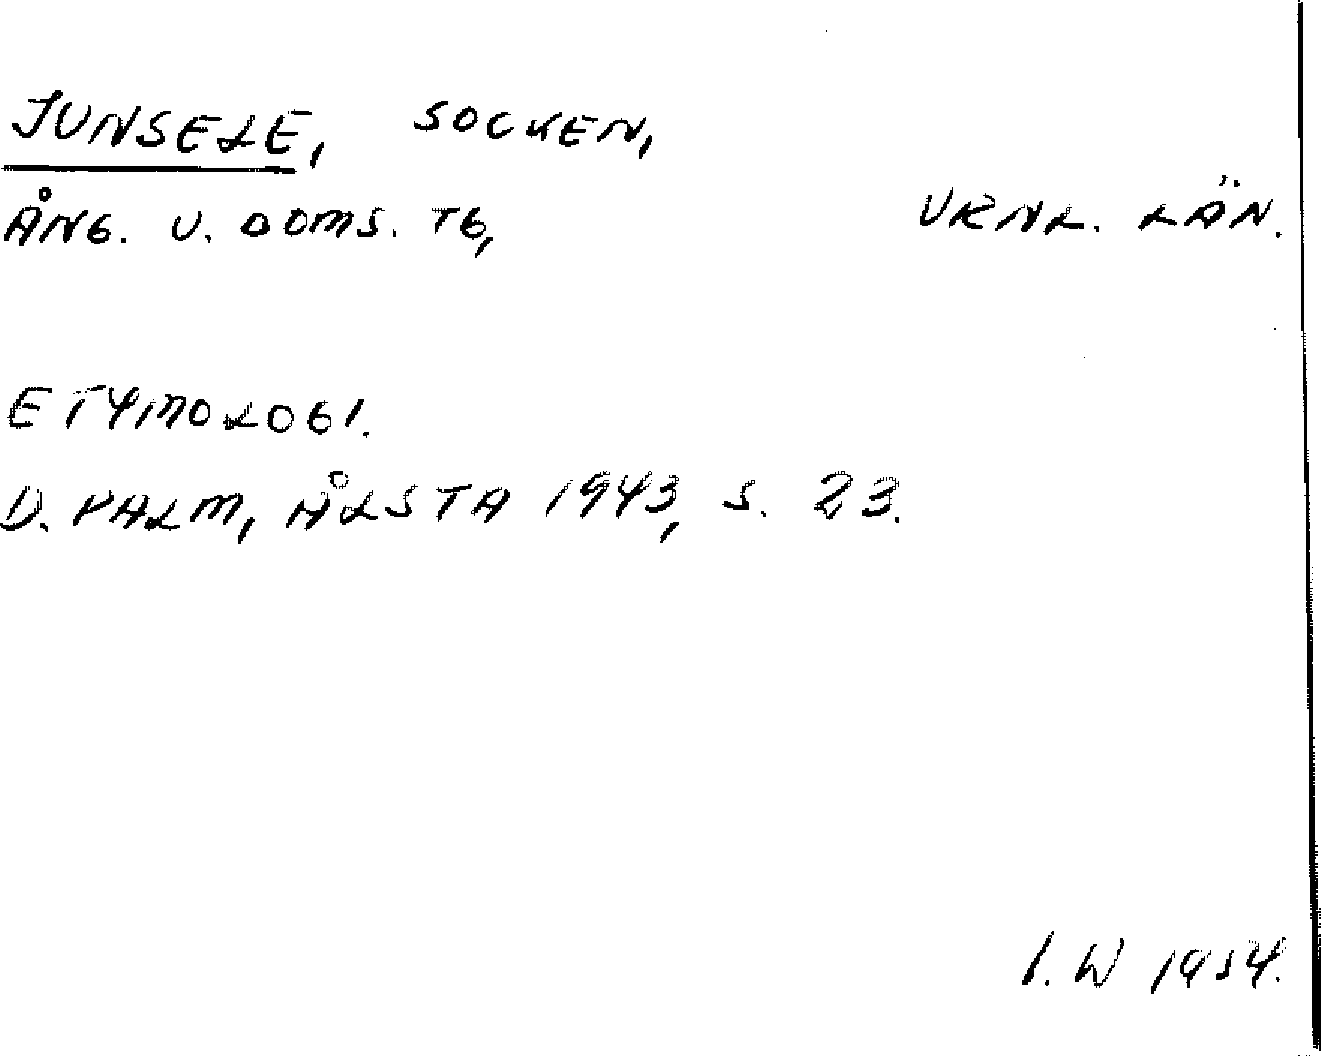 JUNSELE, SOCKEN,
ÅNG. V. DOMS. TG, VRNL. LÄN.
ETYMOLOGI.
D. PALM, ÅLSTA 1943, S. 23.
I. W 1954.